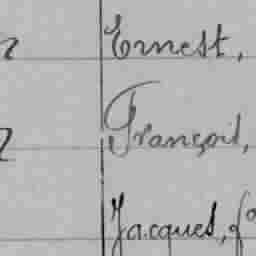 Ernest,
François,
Jacques,